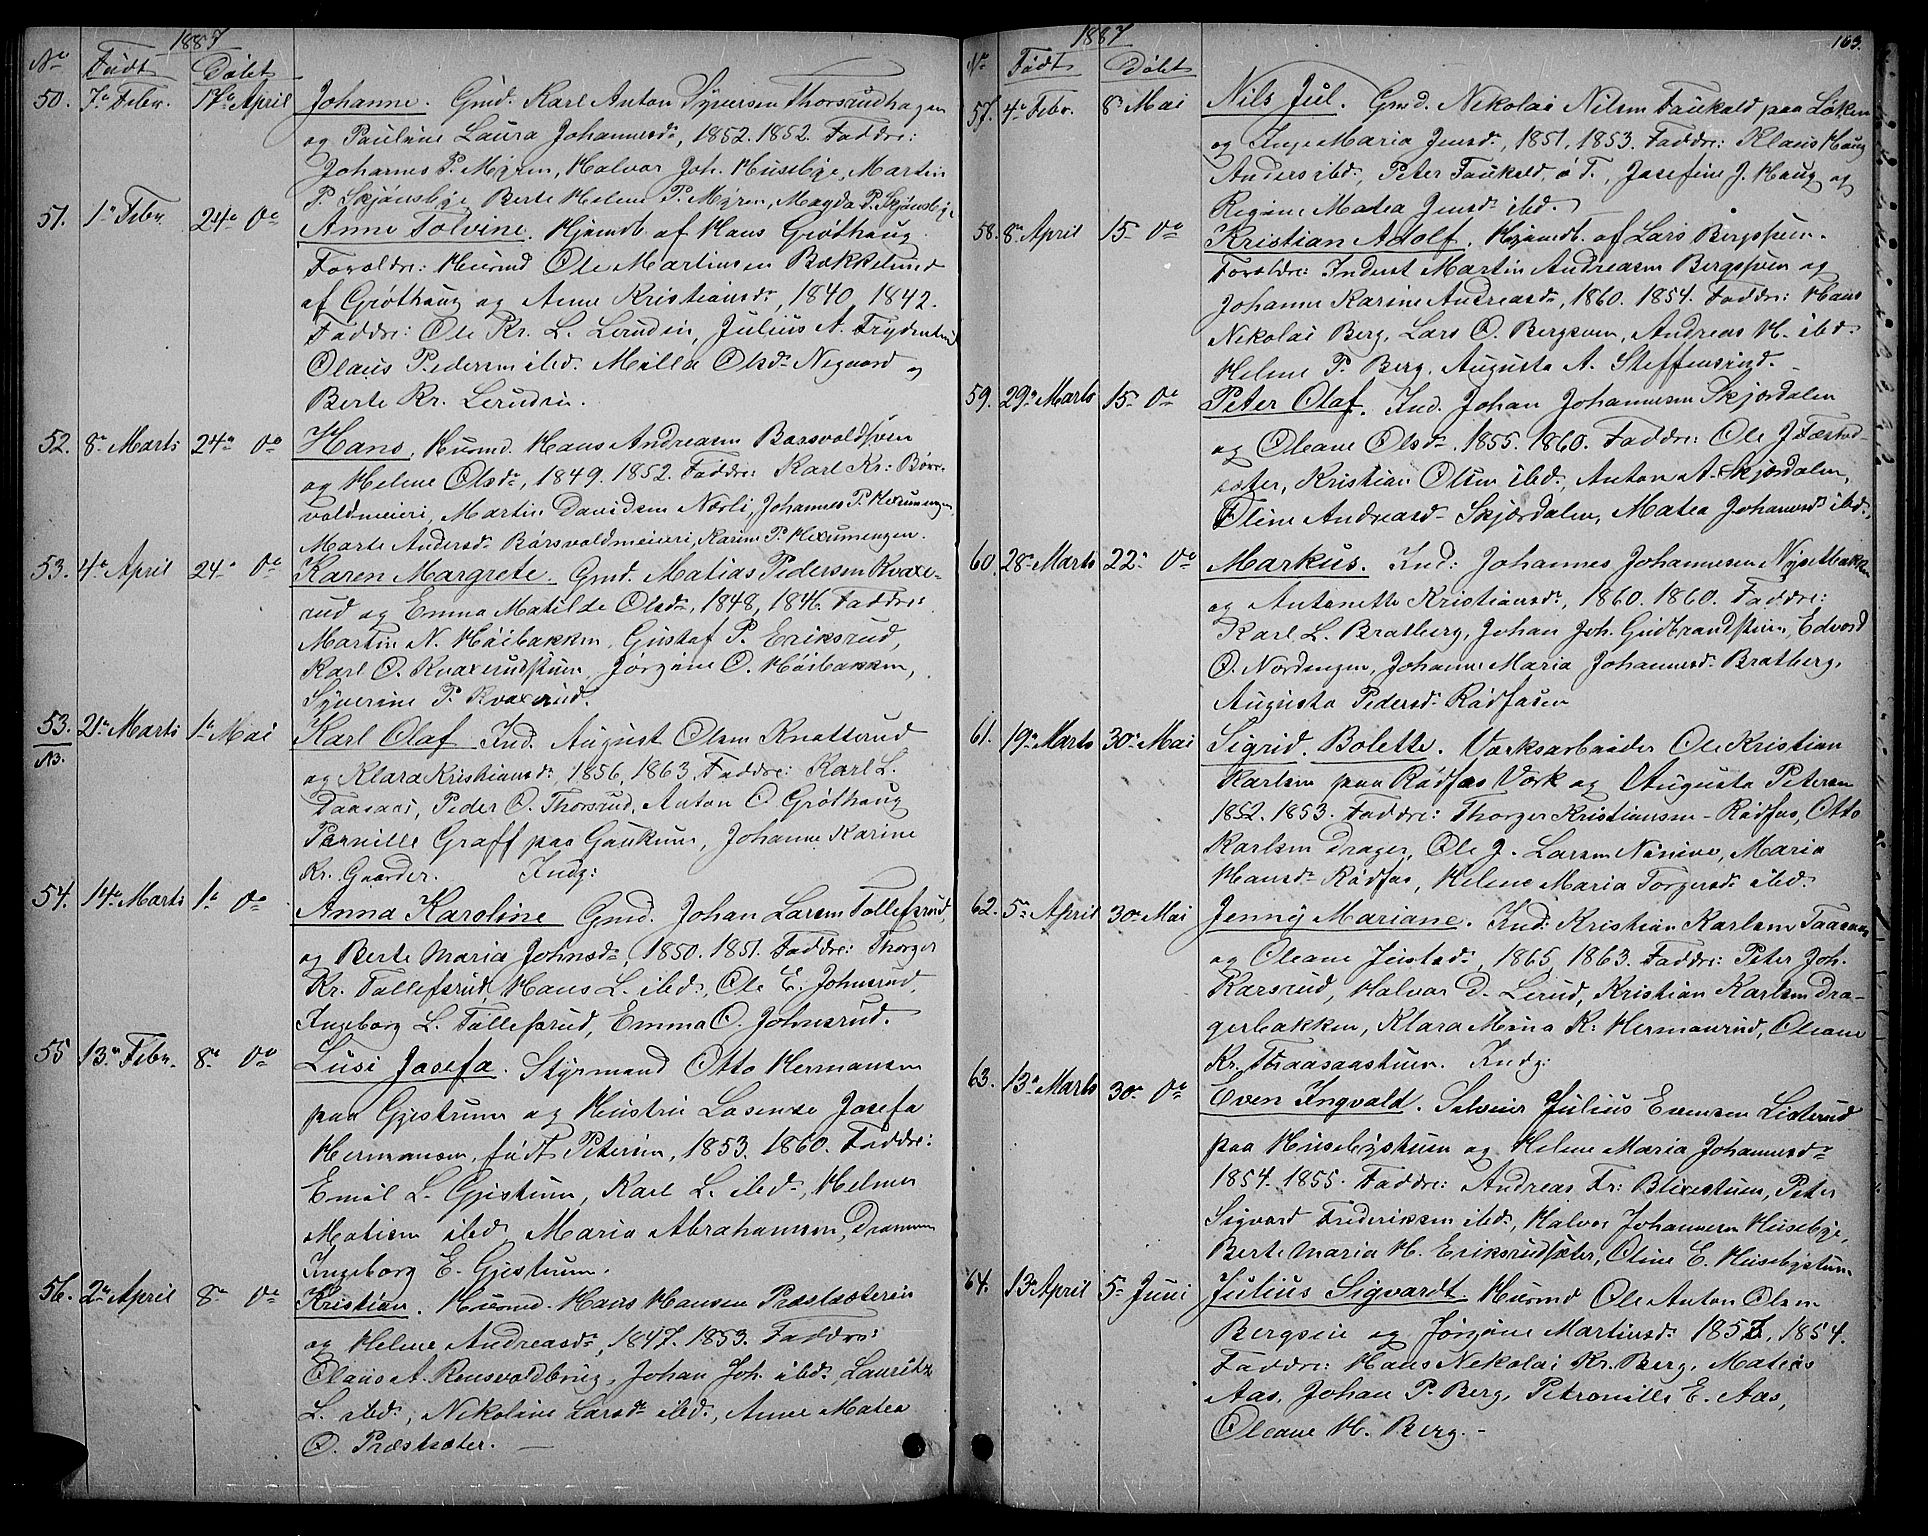 1887
No Født Døbt
50. 7de Febr. 17de April Johanne. Gmd. Karl Anton Syversen Thorsrudhagen
og Pauline Laura Johannesdr, 1852. 1852. Faddre:
Johannes P. Myren, Halvor Joh. Husebye, Martin
P. Skjønsbye Berte Helene P. Myren, Magda P. Skjønsbye
51. 1ste Febr. 24de Do Anne Tolvine. Hjemdt. af Hans Grøthaug
Forældre: Husmd Ole Martinsen Bækkelund
af Grøthaug og Anne Kristiansdr, 1840, 1842.
Faddre: Ole Kr. L. Lerudein, Julius A. Frydenlund
Olaus Pedersen ibd. Milla Olsdr Nygaard og
Berte Kr. Lerudein.
52. 8de Marts 24de Do Hans, Husmd. Hans Andreasen Børsvoldsveen
og Helene Olsdr, 1849. 1852. Faddre: Karl Kr: Børs-
voldmeieri, Martin Davidsen Nærli, Johannes P. Hexumengen,
Marte Andersdr Børsvoldmeieri, Karine P. Hexumengen.
53. 4de April 24de Do Karen Margrete. Gmd. Matias Pedersen Kvaxe-
rud og Emma Matilde Olsdr, 1848, 1846. Faddre:
Martin N. Høibakken, Gustaf P. Eriksrud,
Karl O. Kvaxerudstuen, Jørgine O. Høibakken,
Syverine P. Kvaxerud.
53. 21de Marts 1ste Mai Karl Olaf Ind. August Olsen Knatterud
NB. og Klara Kristiansdr 1856, 1863 Faddre: Karl L.
Taasaas, Peder O. Thorsrud, Anton O Grøthaug
Pernille Graff paa Gaukum, Johanne Karine
Kr. Gaarder. Indg:
54. 14de Marts 1ste Do Anna Karoline Gmd. Johan Larsen Tollefsrud,
og Berte Maria Johnsdr, 1850. 1851. Faddre: Thorger
Kr. Tollefsrud, Hans L. ibd., Ole E. Johnsrud,
Ingeborg L. Tollefsrud, Emma O. Johnsrud.
55 13de Febr. 8de Do Lusi Josefa. Styrmand Otto Hermansen
paa Gjestrum og Hustru Losense Josefa
Hermansen, født Petersen, 1853. 1860. Faddre:
Emil L. Gjestum, Karl L. ibd., Helmer
Matisen ibd, Maria Abrahamsen, Drammen
Ingeborg E. Gjestrum.
56. 2den April 8de Do Kristian. Husmd. Hans Hansen Præstsæterein
og Helene Andreasdr, 1847. 1853. Faddre:
Olaus A. Rensvoldbrug, Johan Joh. ibd., Lauritz
L. ibd., Nikoline Larsdr ibd., Anne Matea
O. Præstsæter. —
1887 163.
No Født Døbt
57. 4de Febr. 8de Mai Nils Jul. Gmd. Nikolai Nilsen Faukald paa Løken
og Inge Maria Jensdr, 1851, 1853. Faddre: Klaus Haug
Anders ibd., Peter Faukald ø T., Josefine J. Haug og
Regine Matea Jensdr ibd.
58. 8de April 15de Do Kristian Adolf, Hjemdt. af Lars Bergsveen.
Forældre: Inderst Martin Andreasen Bergsveen og
Johanne Karine Andreasdr, 1860. 1854. Faddre: Hans
Nikolai Berg, Lars O. Bergsveen, Andreas H. ibd.
Helene P. Berg, Augusta A. Steffensrud.
59. 29de Marts 15de Do Peter Olaf. Ind. Johan Johannesen Skjørdalen
og Oleane Olsdr. 1855. 1860. Faddre: Ole J. Fæstad-
sæter, Kristian Olsen ibd., Anton A. Skjærdalen,
Eline Andreasdr Skjærdalen, Matea Johannesdr ibd.,
60. 28de Marts 22de Do Markus. Ind: Johannes Johannesen Nysetbakken
og Antonette Kristiansdr, 1860. 1860. Faddre:
Karl L. Bratberg, Johan Joh. Gudbrandstuen, Edvard
O. Nordengen, Johanne Maria Johannesdr Bratberg,
Augusta Pedersdr Rødfosen
61. 19de Marts 30de Mai Sigrid. Bolette. Værksarbeider Ole Kristian
Karlsen paa Rødfos Værk og Augusta Petersen
1852. 1853. Faddre: Thorger Kristiansen Rødfos, Otto
Karlsen Drager, Ole J. Larsen Ninive, Maria
Hansdr Rødfos, Helene Maria Torgersdr ibd.
62. 5te April 30de Mai Jenny Mariane. Ind: Kristian Karlsen Taasaas
og Oleane Jeistadr, 1865. 1863. Faddre: Peter Joh.
Karsrud, Halvor D. Lerud, Kristian Karlsen Dra-
gerbakken, Klara Mina K. Hermanrud, Oleane
Kr. Taasaastuen. Indg:
63. 13de Marts 30de Do Even Ingvald. Selveier Julius Evensen Listerud
paa Husebystuen og Helene Maria Johannesdr
1854. 1855. Faddre: Andreas Fr: Blixestuen, Peter
Sigvard Frederiksen ibd., Halvor Johannesen Husebye,
Berte Maria H. Eriksrudsæter, Oline E. Husebystuen
64. 13de April 5te Juni Julius Sigvardt. Husmd Ole Anton Olsen
Bergsein og Jørgine Martinsdr 1857, 1854.
Faddre: Hans Nekolai Kr. Berg, Matias
Aas, Johan P. Berg, Petronille E. Aas,
Oleane H. Berg. -